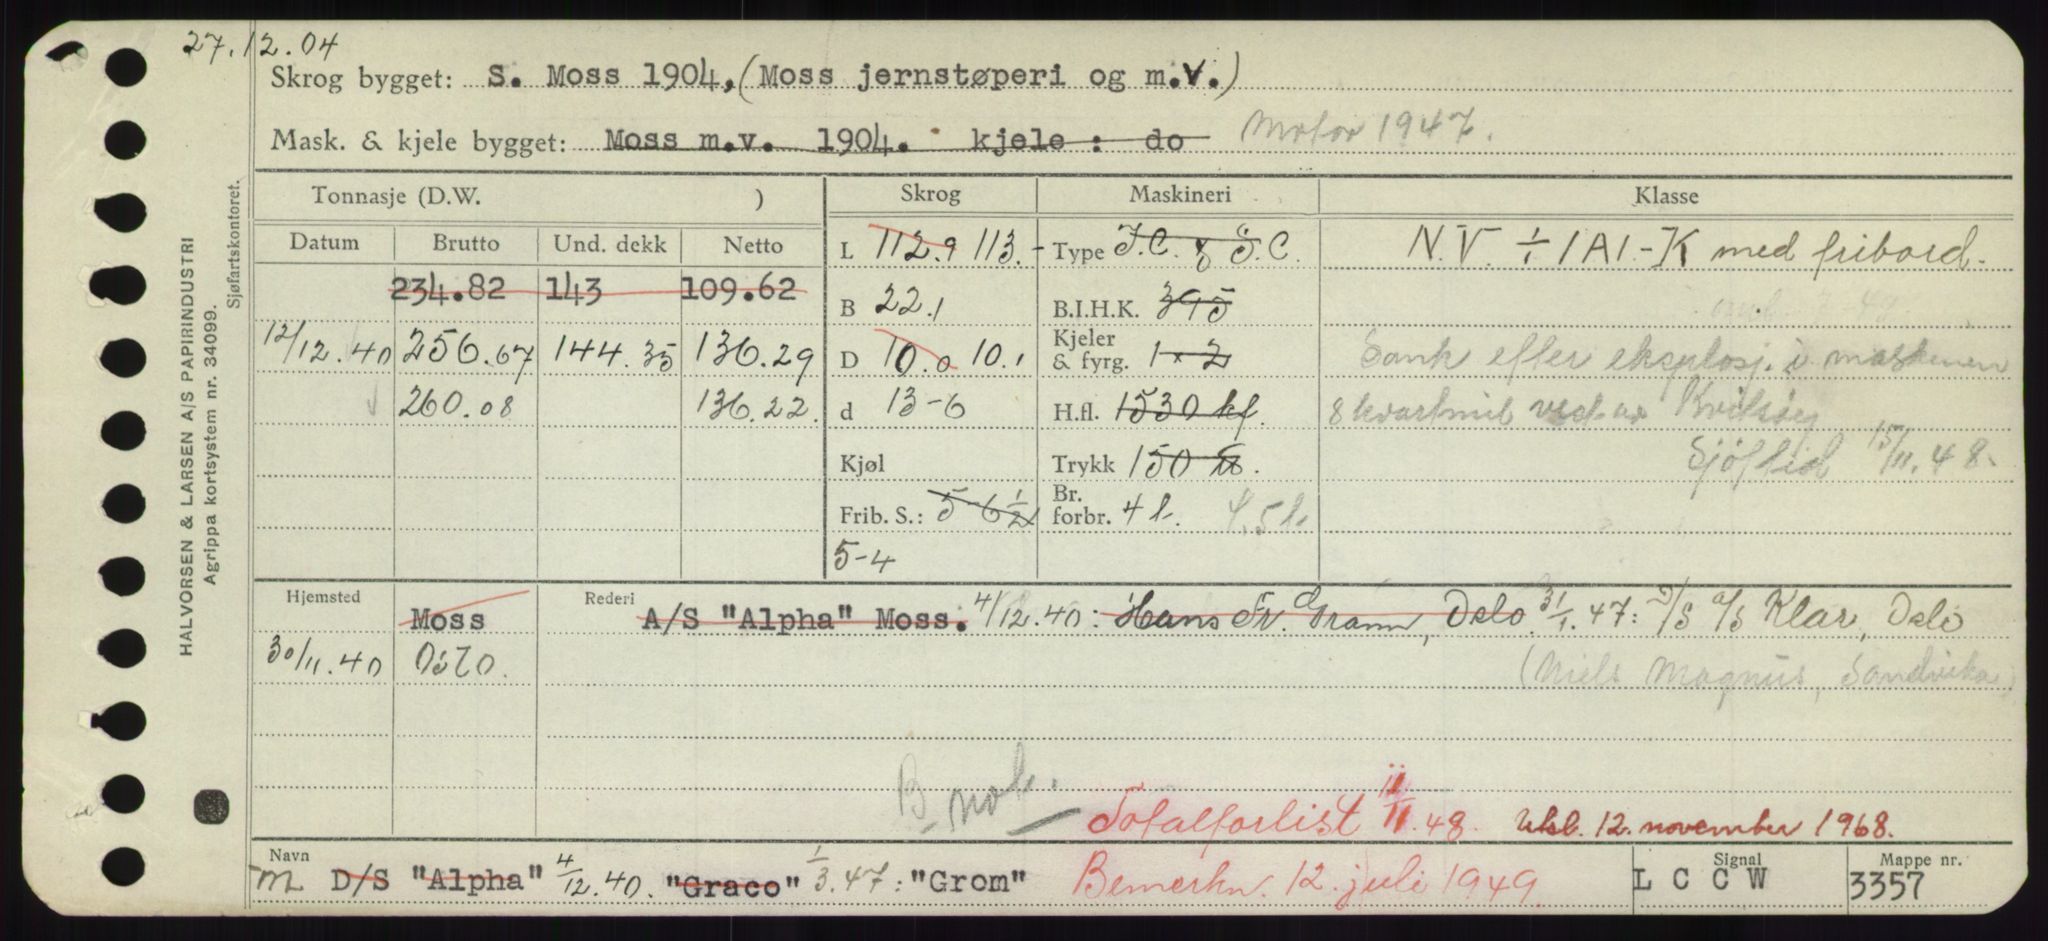 27.12.04
Skrog bygget: S. Moss 1904, (Moss jernstøperi og m.v.)
Mask. & kjele bygget: Moss m.v. 1904. kjele : do Motor 1947.
Tonnasje (D.W. ) Skrog Maskineri Klasse
Datum Brutto Und. dekk Netto
L 112.9 113.- Type T.C. & S.C. N.V. ÷ 1A1.-K med fribord.
234.82 143 109.62
B 22.1 B.I.H.K. 395
12/12.40 256.67 144.35 136.29 D 10.0 10.1 Kjeler & fyrg. 1 x 2 Sank efter eksplosj. i maskinen
260.08 136.22 d 13-6 H.fl. 1530 kf. 8 kvartmil vest av Kvitsøy
Kjøl Trykk 150 Sjöftid 15/11.48.
Frib. S.: 5-6 1/2 Br. forbr. 4 t. 4.5 t.
5-4
Hjemsted Moss Rederi A/S "Alpha" Moss. 4/12.40: Hans Fr. Gram, Oslo. 31/1.47: D/S a/s Klar, Oslo
30/11.40 Oslo. (Niels Magnus, Sandvika)
B not.
Totalforlist 11/11.48. Utst. 12. november 1968.
Navn Signal Mappe nr.
M D/S "Alpha" 4/12.40. "Graco" 1/3.47: "Grom" Bemerkn. 12. juli 1949. L C C W 3357
HALVORSEN & LARSEN A/S PAPIRINDUSTRI
Agrippa kortsystem nr. 34099.
Sjøfartskontoret.